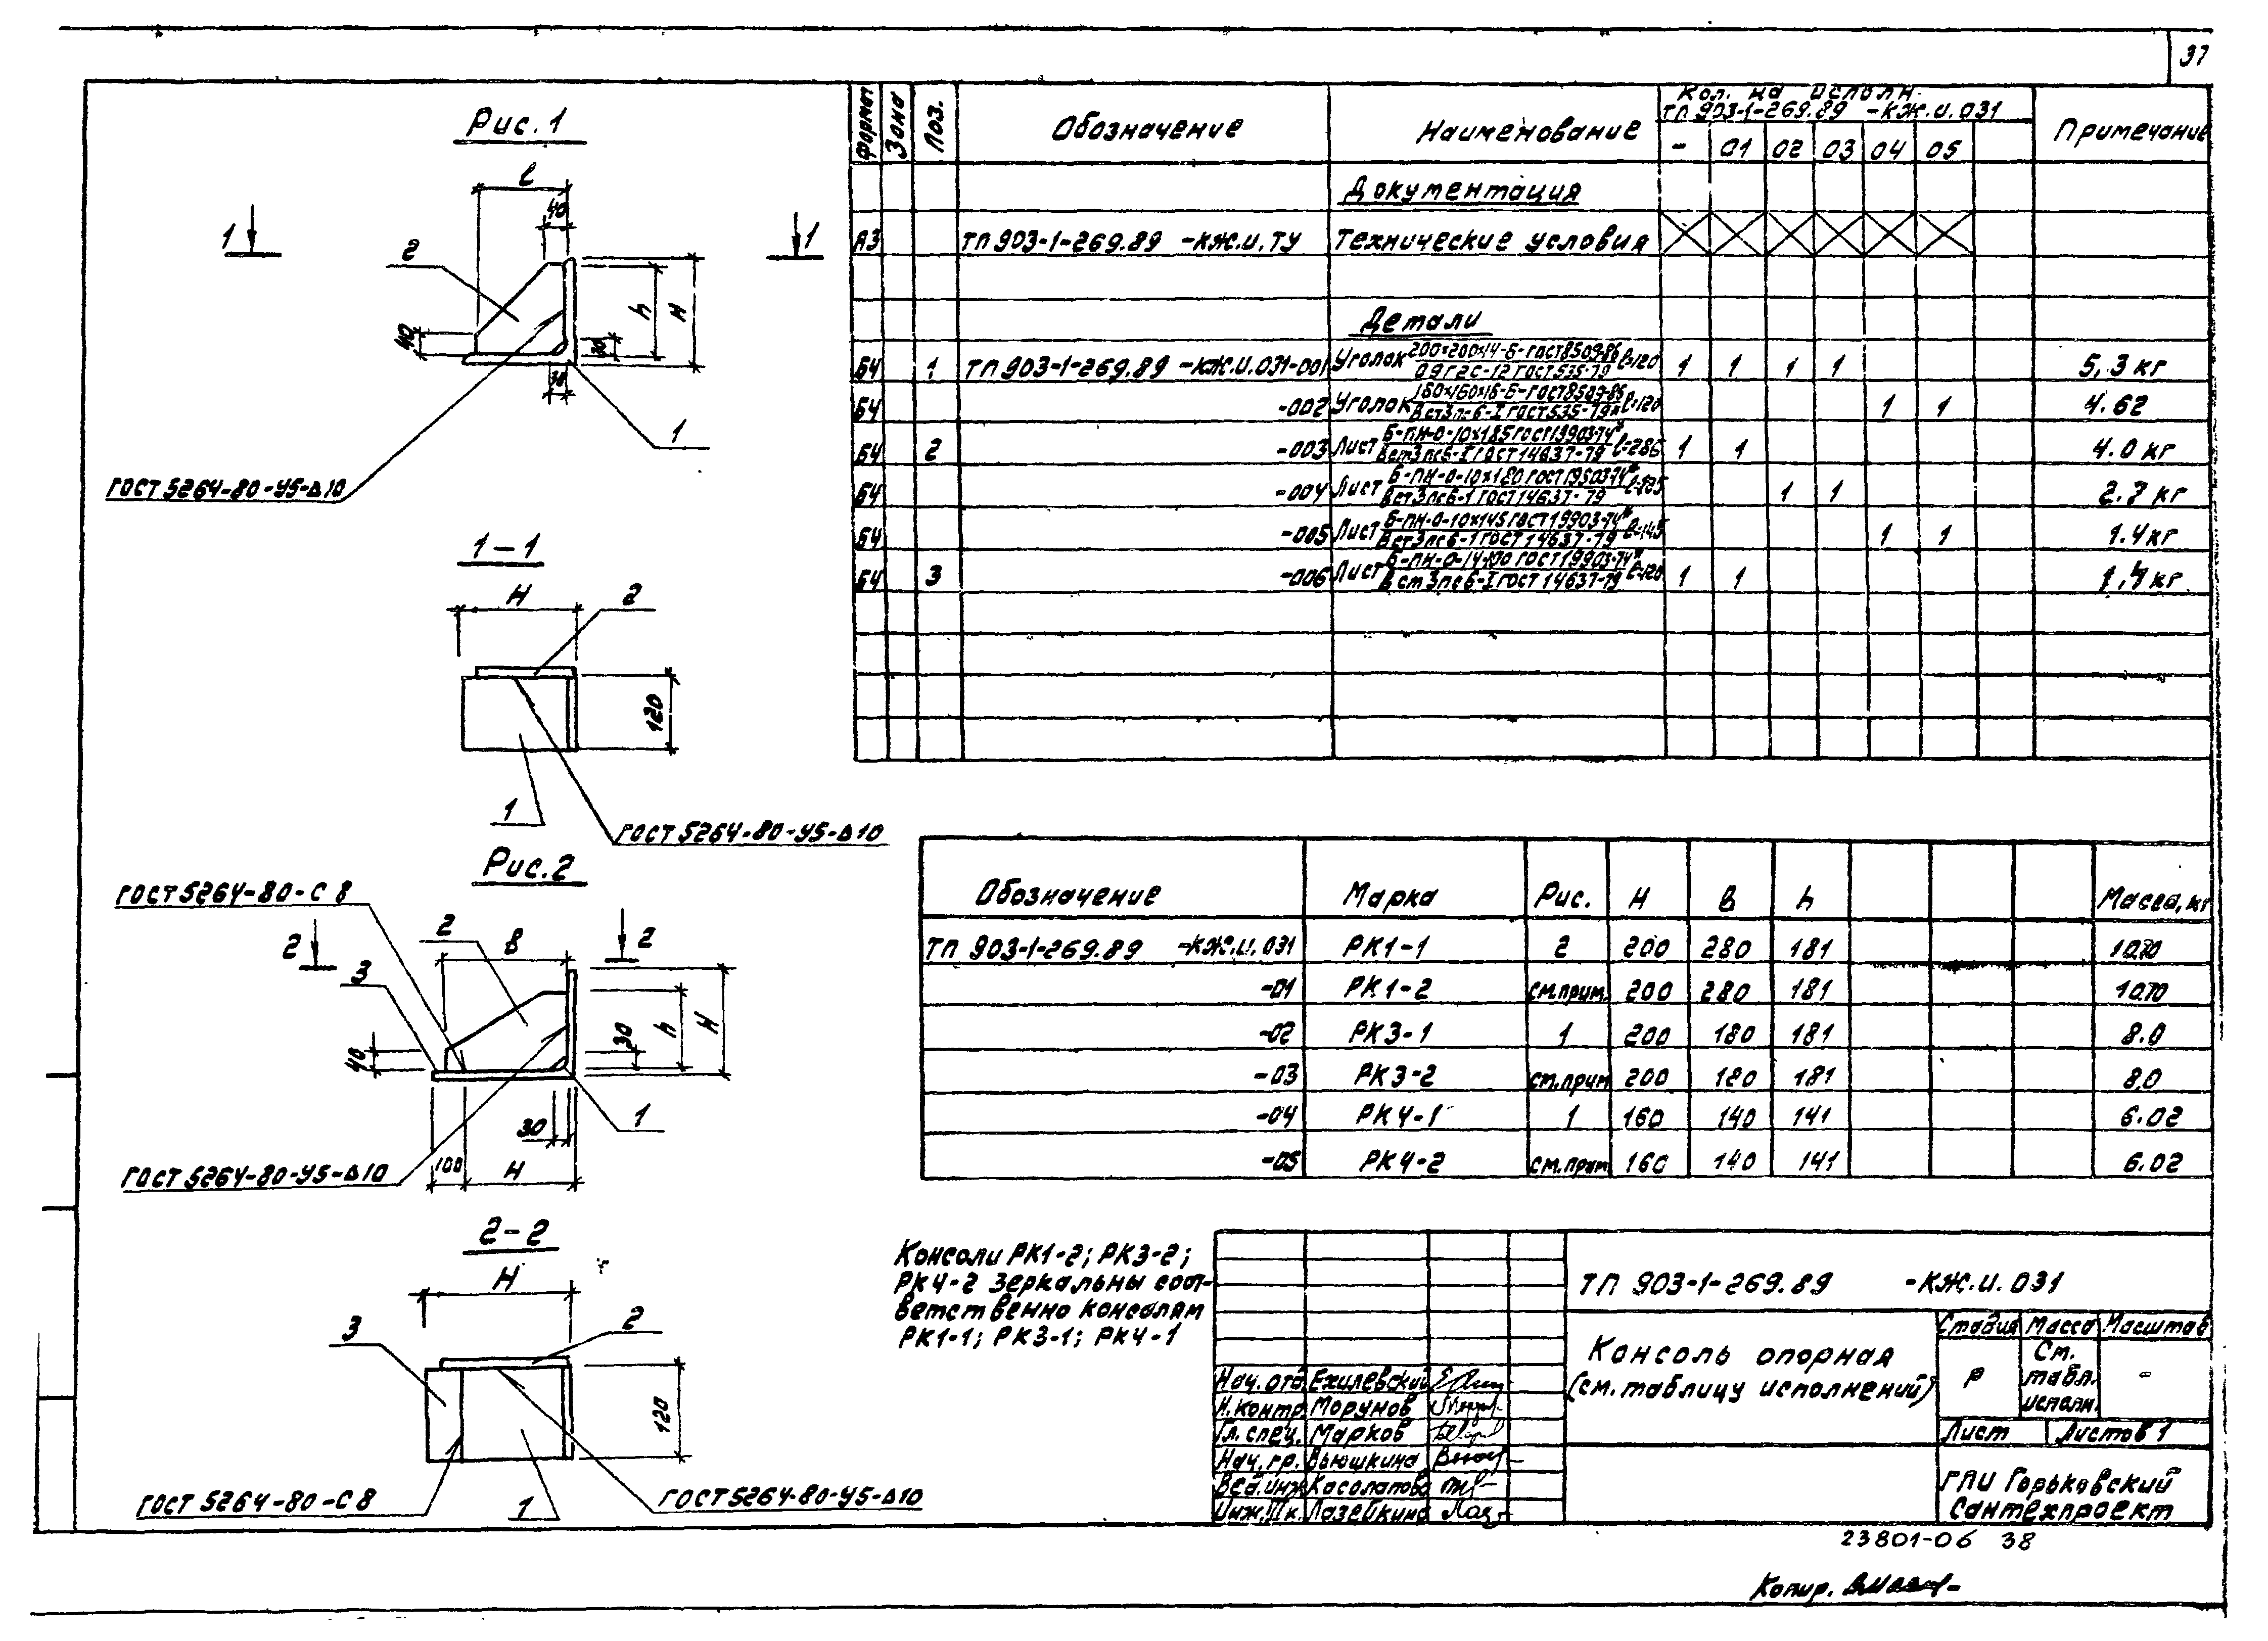 37
Рис. 1
l
40
1
1
2
h
H
40
30
30
1
ГОСТ 5264-80-У5-Δ10
1-1
H
2
120
1
ГОСТ 5264-80-У5-Δ10
Рис. 2
ГОСТ 5264-80-С 8
2
2
2
В
3
40
30
h
H
1
30
100
H
ГОСТ 5264-80-У5-Δ10
2-2
H
3
2
120
1
ГОСТ 5264-80-С8
ГОСТ 5264-80-У5-Δ10
Формат Зона Поз. Обозначение Наименование Кол. на исполн. Примечание
ТП 903-1-269.89 -КЖ.И.031
- 01 02 03 04 05
Документация
А3 ТП 903-1-269.89 -КЖ.И.ТУ Технические условия
Детали
Б4 1 ТП 903-1-269.89 -КЖ.И.031-001 Уголок 200×200×14-Б-ГОСТ 8509-86 / 09Г2С-12 ГОСТ 535-79 l=120 1 1 1 1 5,3 кг
Б4 -002 Уголок 160×160×16-Б-ГОСТ 8509-86 / ВСт3пс6-I ГОСТ 535-79 l=120 1 1 4.62
Б4 2 -003 Лист Б-ПН-О-10×185 ГОСТ 19903-74* / ВСт3пс6-I ГОСТ 14637-79 l=286 1 1 4.0 кг
Б4 -004 Лист Б-ПН-О-10×180 ГОСТ 19903-74* / ВСт3пс6-I ГОСТ 14637-79 1 1 2.7 кг
Б4 -005 Лист Б-ПН-О-10×145 ГОСТ 19903-74* / ВСт3пс6-I ГОСТ 14637-79 l=145 1 1 1.4 кг
Б4 3 -006 Лист Б-ПН-О-14×100 ГОСТ 19903-74* / ВСт3пс6-I ГОСТ 14637-79 l=120 1 1 1,4 кг
Обозначение Марка Рис. H В h Масса, кг
ТП 903-1-269.89 -КЖ.И.031 РК1-1 2 200 280 181 10.70
-01 РК1-2 см.прим. 200 280 181 10.70
-02 РК3-1 1 200 180 181 8.0
-03 РК3-2 см.прим 200 180 181 8.0
-04 РК4-1 1 160 140 141 6.02
-05 РК4-2 см.прим 160 140 141 6.02
Консоли РК1-2; РК3-2;
РК4-2 зеркальны соот-
ветственно консолям
РК1-1; РК3-1; РК4-1
ТП 903-1-269.89 -КЖ.И.031
Консоль опорная
(см. таблицу исполнений)
Стадия Масса Масштаб
Р См. табл. исполн. -
Лист Листов 1
ГПИ Горьковский
Сантехпроект
Нач. отд Ехилевский
Н.контр. Морунов
Гл. спец. Марков
Нач. гр. Вьюшкина
Вед.инж Касолапова
Инж. IIк. Лазейкина
23801-06 38
Копир.